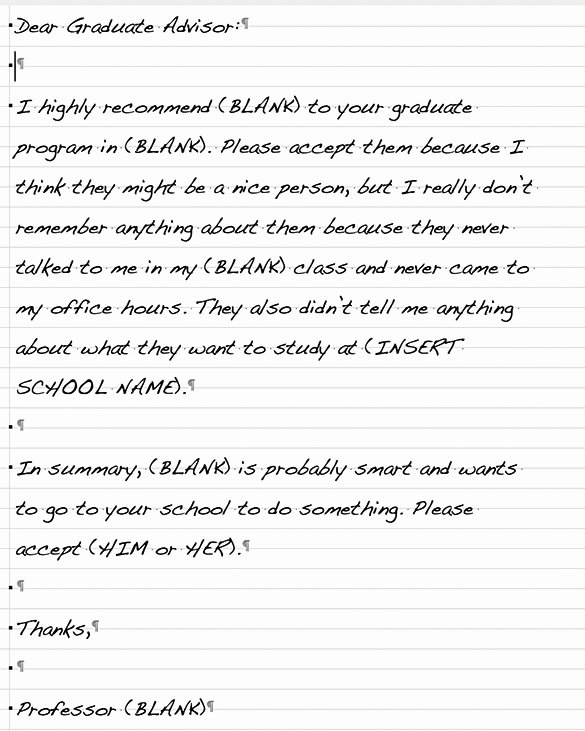 Dear Graduate Advisor:
I highly recommend (BLANK) to your graduate
program in (BLANK). Please accept them because I
think they might be a nice person, but I really don't
remember anything about them because they never
talked to me in my (BLANK) class and never came to
my office hours. They also didn't tell me anything
about what they want to study at (INSERT
SCHOOL NAME).
In summary, (BLANK) is probably smart and wants
to go to your school to do something. Please
accept (HIM or HER).
Thanks,
Professor (BLANK)